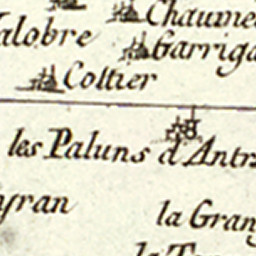 Chaume
alobre
Garriga
Coltier
les Paluns d'Antr
yran
la Gran